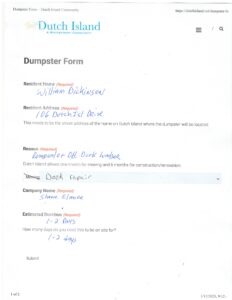 Dumpster Form - Dutch Island Community
Dutch Island
Dumpster Form
Resident Name (Required)
William Dickinson
Resident Address (Required)
106 Dutch Isl Drive
This needs to be the street address of the home on Dutch Island where the dumpster will be located
Reason (Required)
Dumpster Off Dock Lumber
Dutch Island allows one month for moving and 6 months for construction/renovation
Dock repair
Company Name (Required)
Estimated Duration (Required)
1-2 Days
How many days do you need this to be on site for?
1-2 days
Submit
1 of 1